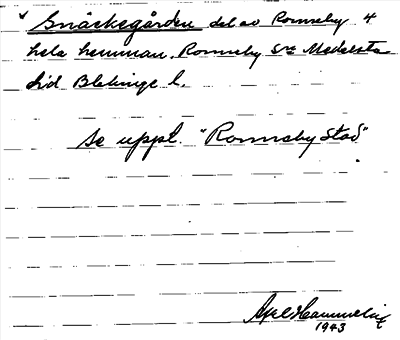 v Snäckegården del av Ronneby 4
hela hemman, Ronneby sn Medelsta
hd Blekinge l.
se uppt. "Ronneby stad"
Axel
1943